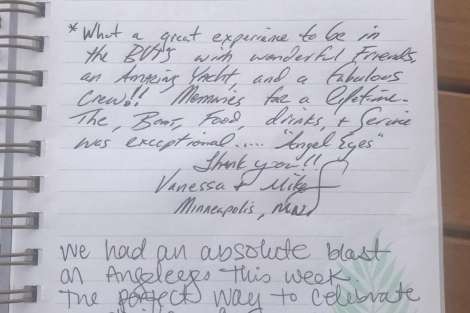 * What a great experience to be in
the BVI's with wonderful Friends,
an Amazing Yacht, and a fabulous
Crew!! Memories for a lifetime.
The, Boat, Food, drinks, & Service
was exceptional..... "Angel Eyes"
Thank you!!
Vanessa & Mike
Minneapolis, MN
We had an absolute blast
on Angeleyes this week.
The perfect way to celebrate